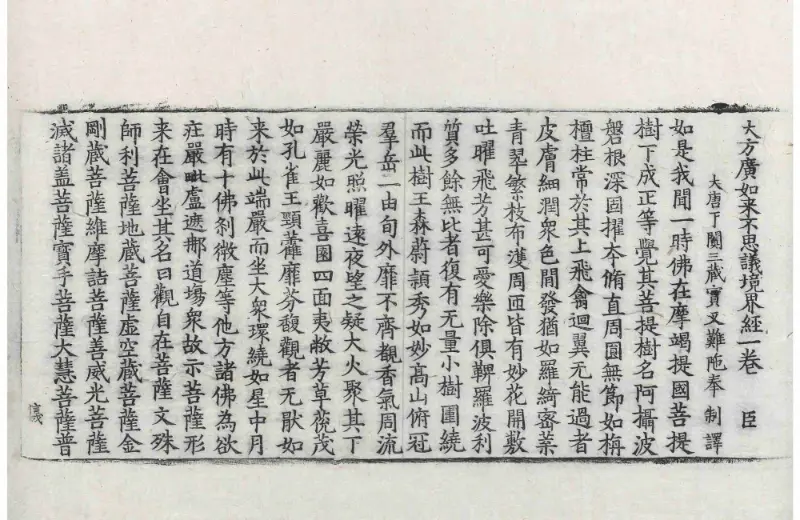 大方廣如来不思議境界經一卷 臣
大唐于闐三藏實叉難陁奉 制譯
如是我聞一時佛在摩竭提國菩提
樹下成正等覺其菩提樹名阿攝波
磐根深固擢本脩直周圓無節如栴
檀柱常於其上飛禽迴翼无能過者
皮膚細潤衆色間發猶如羅綺密葉
青翠繁枝布濩周迊皆有妙花開敷
吐曜飛芳甚可愛樂除俱鞞羅波利
質多餘無比者復有无量小樹圍繞
而此樹王森蔚頴秀如妙高山俯冠
羣岳一由旬外靡不齊覩香氣周流
榮光照曜遠夜望之疑大火聚其下
嚴麗如歡喜園四面夷敞芳草蓊茂
如孔雀王頸藿靡芬馥觀者无猒如
来於此端嚴而坐大衆環繞如星中月
時有十佛刹微塵等他方諸佛為欲
莊嚴毗盧遮那道場衆故示菩薩形
来在會坐其名曰觀自在菩薩文殊
師利菩薩地藏菩薩虛空藏菩薩金
剛藏菩薩維摩詰菩薩善威光菩薩
滅諸盖菩薩寶手菩薩大慧菩薩普